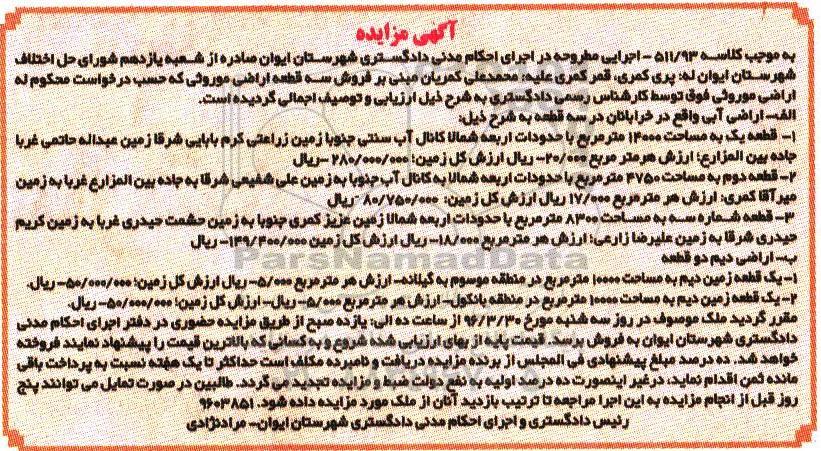 آگهی مزایده
به موجب کلاسه ۵۱۱/۹۳ - اجرایی مطروحه در اجرای احکام مدنی دادگستری شهرستان ایوان صادره از شعبه یازدهم شورای حل اختلاف
شهرستان ایوان له: پری کمری، قمر کمری علیه: محمدعلی کمریان مبنی بر فروش سه قطعه اراضی موروثی که حسب درخواست محکوم له
اراضی موروثی فوق توسط کارشناس رسمی دادگستری به شرح ذیل ارزیابی و توصیف اجمالی گردیده است.
الف- اراضی آبی واقع در خرابانان در سه قطعه به شرح ذیل:
۱- قطعه یک به مساحت ۱۴۰۰۰ مترمربع با حدودات اربعه شمالا کانال آب سنتی جنوبا زمین زراعتی کرم بابایی شرقا زمین عبداله حاتمی غربا
جاده بین المزارع؛ ارزش هر متر مربع ۲۰/۰۰۰- ریال ارزش کل زمین؛ ۲۸۰/۰۰۰/۰۰۰ -ریال
۲- قطعه دوم به مساحت ۴۷۵۰ مترمربع با حدودات اربعه شمالا به کانال آب جنوبا به زمین علی شفیعی شرقا به جاده بین المزارع غربا به زمین
میرآقا کمری: ارزش هر مترمربع ۱۷/۰۰۰ ریال ارزش کل زمین: ۸۰/۷۵۰/۰۰۰- ریال
۳- قطعه شماره سه به مساحت ۸۳۰۰ مترمربع با حدودات اربعه شمالا زمین عزیز کمری جنوبا به زمین حشمت حیدری غربا به زمین کریم
حیدری شرقا به زمین علیرضا زارعی؛ ارزش هر مترمربع ۱۸/۰۰۰- ریال ارزش کل زمین ۱۴۹/۴۰۰/۰۰۰- ریال
ب- اراضی دیم دو قطعه
۱- یک قطعه زمین دیم به مساحت ۱۰۰۰۰ مترمربع در منطقه موسوم به گیلانه- ارزش هر مترمربع ۵/۰۰۰- ریال ارزش کل زمین؛ ۵۰/۰۰۰/۰۰۰- ریال.
۲- یک قطعه زمین دیم به مساحت ۱۰۰۰۰ مترمربع در منطقه بانکول- ارزش هر مترمربع ۵/۰۰۰ ریال- ارزش کل زمین؛ ۵۰/۰۰۰/۰۰۰- ریال.
مقرر گردید ملک موصوف در روز سه شنبه مورخ ۹۶/۳/۳۰ از ساعت ده الی: یازده صبح از طریق مزایده حضوری در دفتر اجرای احکام مدنی
دادگستری شهرستان ایوان به فروش برسد. قیمت پایه از بهای ارزیابی شده شروع و به کسانی که بالاترین قیمت را پیشنهاد نمایند فروخته
خواهد شد. ده درصد مبلغ پیشنهادی فی المجلس از برنده مزایده دریافت و نامبرده مکلف است حداکثر تا یک هفته نسبت به پرداخت باقی
مانده ثمن اقدام نماید، درغیر اینصورت ده درصد اولیه به نفع دولت ضبط و مزایده تجدید می گردد. طالبین در صورت تمایل می توانند پنج
روز قبل از انجام مزایده به این اجرا مراجعه تا ترتیب بازدید آنان از ملک مورد مزایده داده شود. ۹۶۰۳۸۵۱
رئیس دادگستری و اجرای احکام مدنی دادگستری شهرستان ایوان- مرادنژادی
ParsNamadData